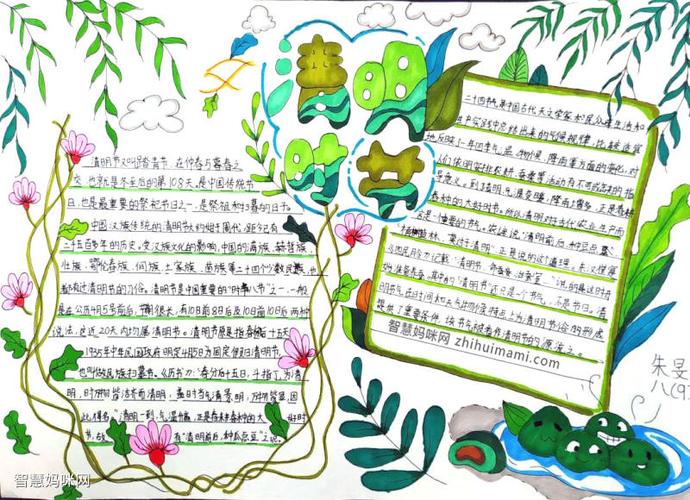 清明
时节
清明节又叫踏青节,在仲春与暮春之
交,也就是冬至后的第108天,是中国传统节
日,也是最重要的祭祀节日之一,是祭祖和扫墓的日子。
中国汉族传统的清明节大约始于周代,距今已有
二千五百多年的历史,受汉族文化的影响,中国的满族、赫哲族、
壮族、鄂伦春族、侗族、土家族、苗族等二十四个少数民族,也
都有过清明节的习俗。清明节是中国重要的“时年八节”之一,一般
是在公历4月5号前后,节期很长,有10日前8日后及10日前10日后两种
说法,这近20天内均属清明节。清明节原是指春分后十五天
1935年中华民国政府明定4月5日为国定假日清明节,
也叫做民族扫墓节。《历书》:“春分后十五日,斗指丁,为清
明,时万物皆洁齐而清明,盖时当气清景明,万物皆显,因
此得名。”清明一到,气温升高,正是春耕春种的大好时
节,故有“清明前后,种瓜点豆”之说。
二十四节气是中国古代天文学家和民众在生活和
中实践中总结出来的气候规律,比较
地反映了一年四季气温、物候、降雨等方面的变化,对
人们依照安排农耕、蚕桑等活动有不可或缺的指
导意义。到了清明,气温变暖,降雨增多,正是春耕
春种的大好时节。所以清明对于古代农业生产而
言是一个重要的节气。俗话说“清明前后,种瓜点豆”
“植树造林,莫过于清明”,正是说的这个道理。
《四民月令》记载:“清明节,命蚕妾,治蚕室……”说的是这时
开始准备养蚕,其中的“清明节”还只是一个节气,不是节日。清
明节气在时间和天气物候特点上为清明节俗的形成
提供了重要条件,该节气被看作清明节的源流之一。
智慧妈咪网 zhihuimami.com
朱旻
八(9)
智慧妈咪网